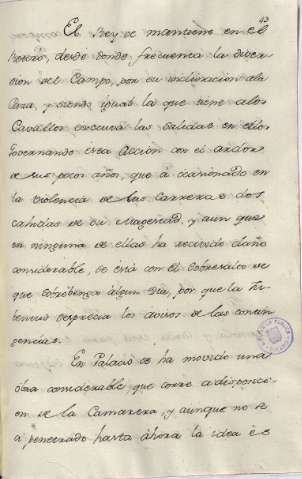 43
El Rey se mantiene en el
Retiro, desde donde frecuenta la diver
sion del Campo, por su inclinacion ala
Caza, y siendo igual la que tiene alos
Cavallos executa las salidas en ellos
governando esta accion con el ardor
de sus pocos años, que à ocasionado en
la violencia de las Carreras dos
cahidas de su Magestad, y aun que
en ninguna de ellas ha recivido daño
considerable, se está con el sobresalto de
que sobrevenga algun dia, por que la
desprecia los avisos de las contin
gencias.
En Palacio se ha movido una
obra considerable que corre a disposicion
on de la Camarera, y aunque no se
à penetrado hasta àhora la idea